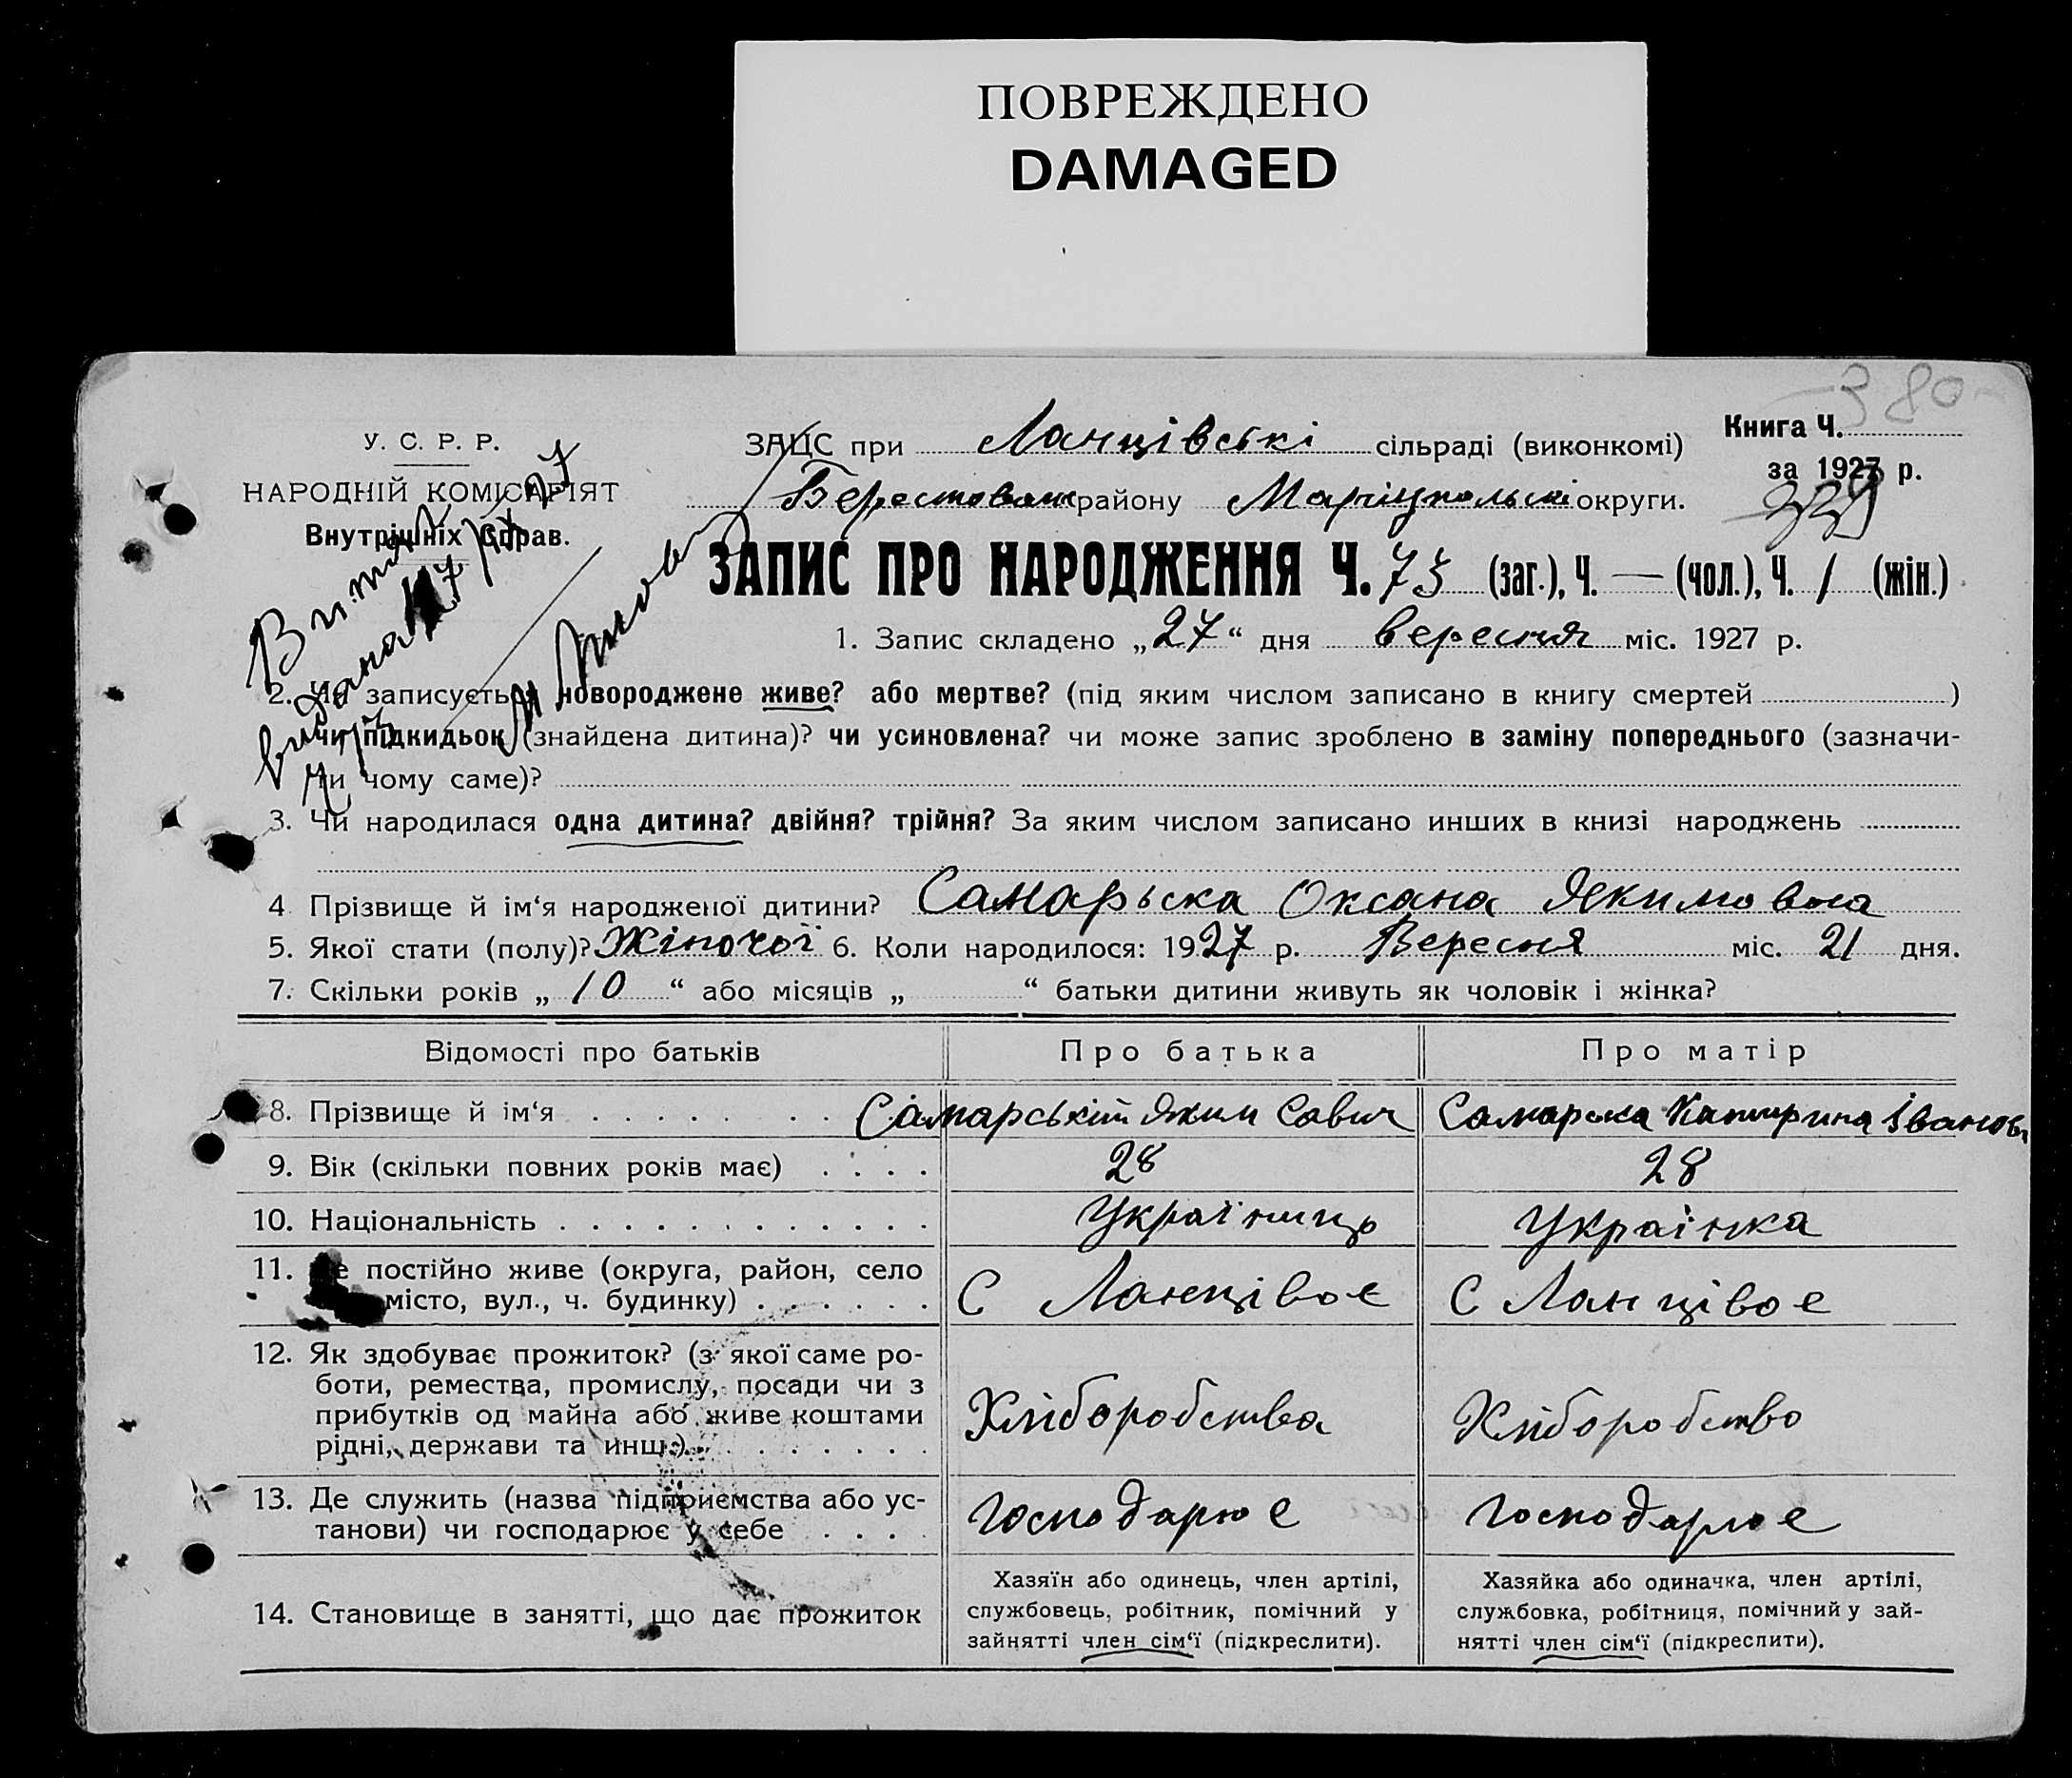 ПОВРЕЖДЕНО
DAMAGED
380
У. С. Р. Р.
НАРОДНІЙ КОМІСАРІЯТ
Внутрішніх Справ.
ЗАЦС при Ланцівські сільраді (виконкомі)
Книга Ч.
за 1927 р.
Берестован району Маріюпольскі округи.
Витяг
видана
ЗАПИС ПРО НАРОДЖЕННЯ Ч. 73 (заг.), Ч. — (чол.), Ч. 1 (жін.)
1. Запис складено „27“ дня вересня міс. 1927 р.
2. Чи записується новороджене живе? або мертве? (під яким числом записано в книгу смертей )
чи підкидьок (знайдена дитина)? чи усиновлена? чи може запис зроблено в заміну попереднього (зазначи-
ти чому саме)?
3. Чи народилася одна дитина? двійня? трійня? За яким числом записано инших в книзі народжень
4 Прізвище й ім‘я народженої дитини? Самарьска Оксана Якимовна
5. Якої стати (полу)? Жіночої 6. Коли народилося: 1927 р. Вересня міс. 21 дня.
7. Скільки років „ 10 “ або місяців „ “ батьки дитини живуть як чоловік і жінка?
Відомості про батьків Про батька Про матір
8. Прізвище й ім‘я Самарській Яким Савич Самарска Катирина Іванов
9. Вік (скільки повних років має) 28 28
10. Національність Україниць Українка
11. Де постійно живе (округа, район, село
місто, вул., ч. будинку) С Ланцівое С Ланцівое
12. Як здобуває прожиток? (з якої саме ро-
боти, ремества, промислу, посади чи з
прибутків од майна або живе коштами
рідні, держави та инш.) Хліборобства Хліборобство
13. Де служить (назва підприємства або ус-
танови) чи господарює у себе господарює господарює
14. Становище в занятті, що дає прожиток
Хазяїн або одинець, член артілі,
службовець, робітник, помічний у
зайнятті член сім‘ї (підкреслити).
Хазяйка або одиначка, член артілі,
службовка, робітниця, помічний у зай-
нятті член сім‘ї (підкреслити).